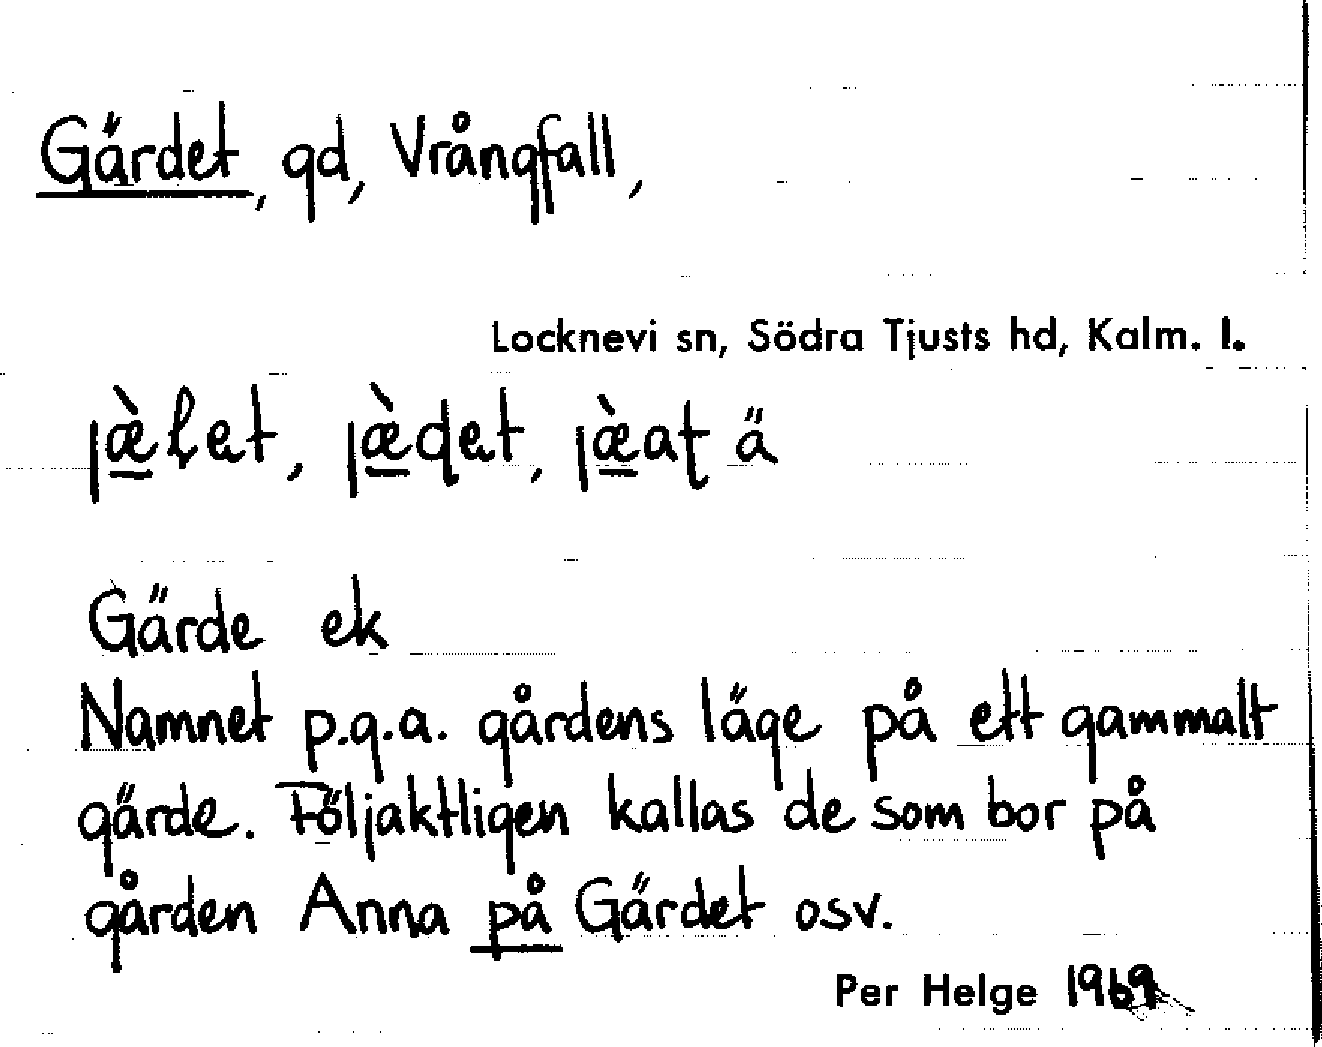 Gärdet, gd, Vrångfall,
Locknevi sn, Södra Tjusts hd, Kalm. l.
jæ̀ɽet, jæ̀ɖet, jæ̀aʈ ä
Gärde ek
Namnet p.g.a. gårdens läge på ett gammalt
gärde. Följaktligen kallas de som bor på
gården Anna på Gärdet osv.
Per Helge 1969